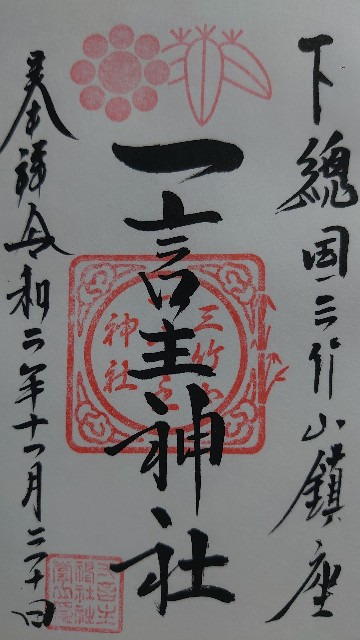 下總國三竹山鎮座
一言主神社
奉拝 令和二年十一月三十日
三竹山
一言主
神社